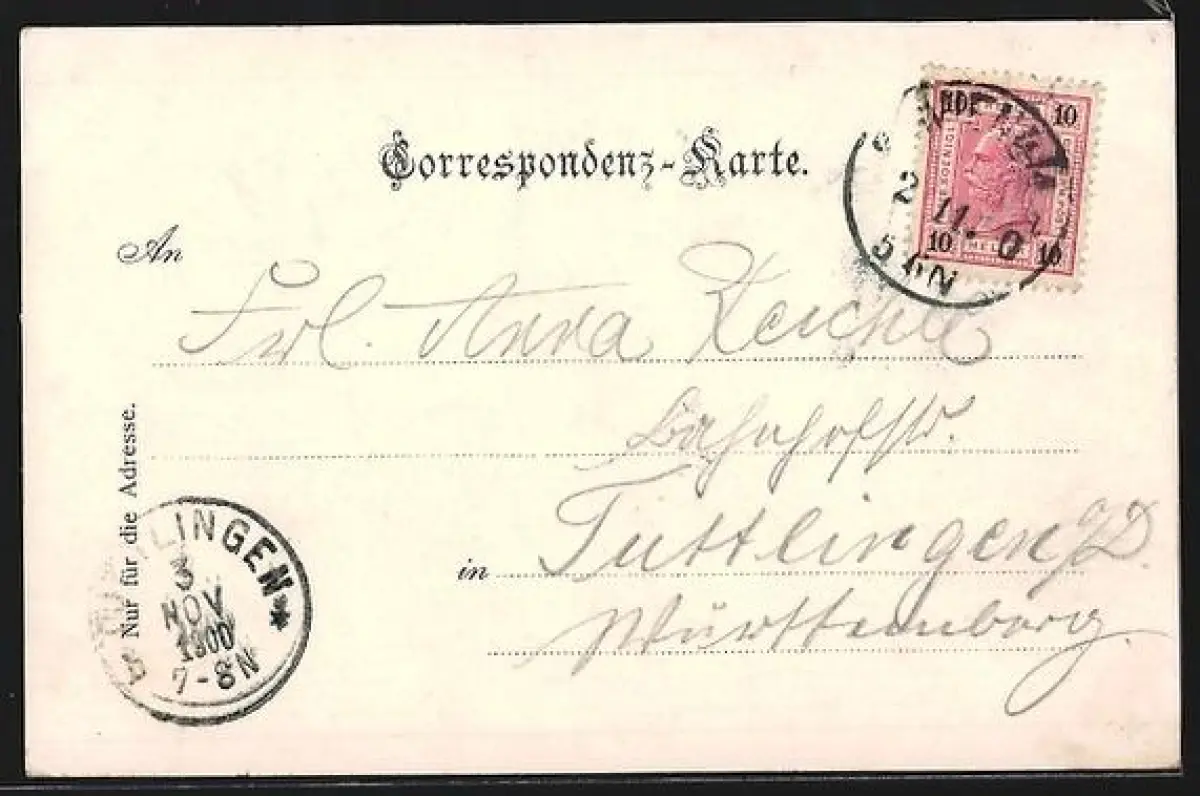 Correspondenz-Karte.
10
10
10
HELLER
2
11. 0
5 6N
An
Frl. Anna Reichle
Bahnhofstr.
in Tuttlingen a/D
Württemberg.
Nur für die Adresse.
TUTTLINGEN *
3
NOV
1900
7-8N